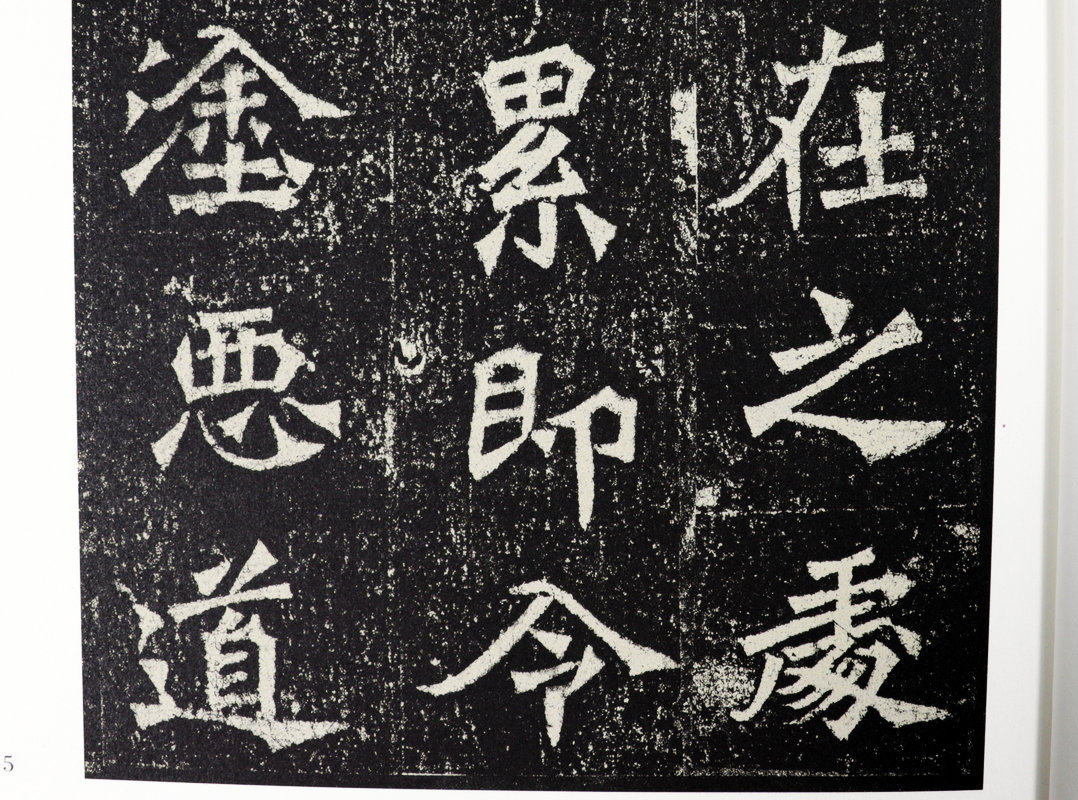 在之處
累即令
塗惡道
5